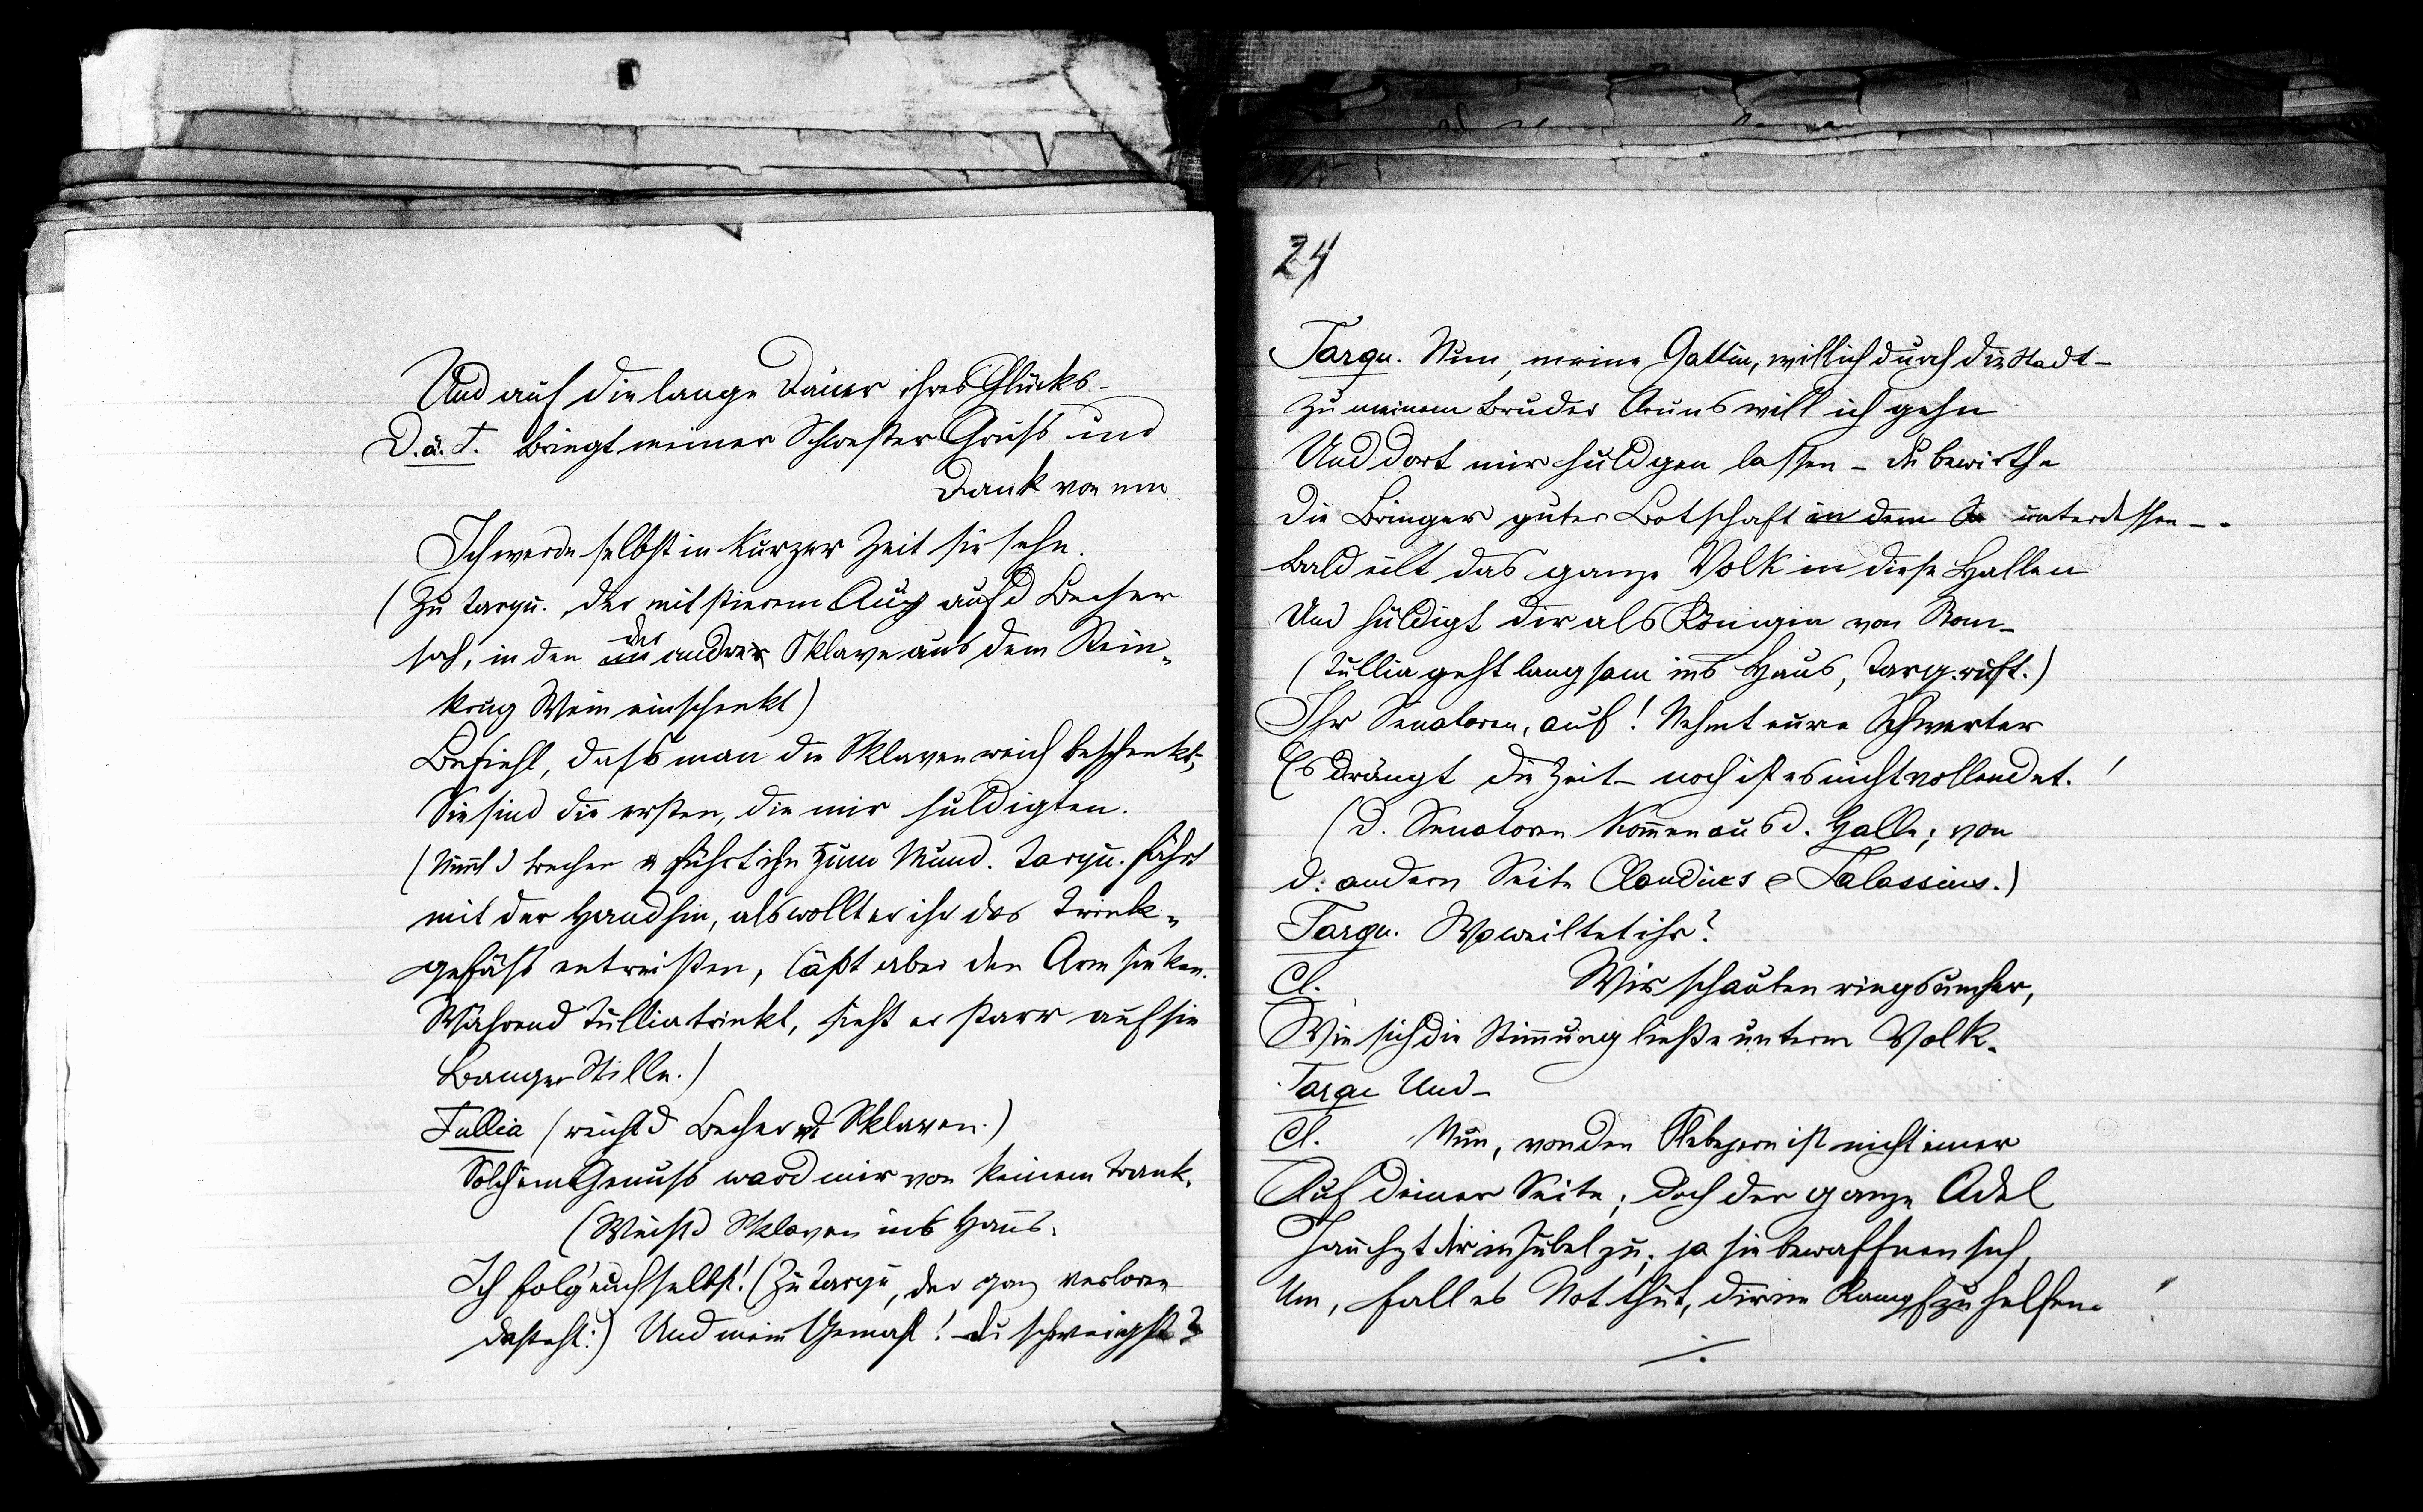 Und auf die lange Dauer ihres Glücks –
D.ä.T. Bringt meiner Schwester Gruss und
Dank von mir
Ich werde selbst in kurzer Zeit sie sehn.
(Zu Tarqu. der mit stierem Aug auf d Becher
sah, in den der andre Sklave aus dem Stein-
krug Wein einschenkt)
Befiehl, dass man die Sklaven reich beschenkt,
Sie sind die ersten, die mir huldigten.
(Nimmt d Becher u führt ihn zum Mund. Tarqu. fährt
mit der Hand hin, als wollt er ihr das Trink-
gefäss entreißen, läßt aber den Arm sinken.
Während Tullia trinkt, sieht er starr auf sie
Banger Stille.)
Tullia (reicht d Becher d Sklaven.)
Solch ein Genuss ward mir von keinem Trank.
(Weist d Sklaven ins Haus.
Ich folg' euch selbst! (Zu Tarqu, der ganz verloren
dasteht:) Und mein Gemahl! – du schweigst?
24
Tarqu. Nun, meine Gattin, will ich durch die Stadt –
Zu meinem Bruder Aruns will ich gehn
Und dort mir huldgen lassen – du bewirthe
Die Bringer guter Botschaft in dem unterdessen – .
Bald eilt das ganze Volk in diese Hallen
Und huldigt dir als Königin von Rom –
(Tullia geht langsam ins Haus, Tarq. ruft.)
Ihr Senatoren, auf! Nehmt eure Schwerter
Es drängt die Zeit – noch ist es nicht vollendet. !
(d. Senatoren kommen aus d. Halle; von
d. andern Seite Claudius & Talassius.)
Tarqu. Wo weiltet ihr?
Cl. Wir schauten rings umher,
Wie sich die Stimmung ließe unterm Volk.
Tarqu Und –
Cl. Nun, von den Plebejern ist nicht einer
Auf deiner Seite; doch der ganze Adel
Jauchzt dir in Jubel zu; ja sie bewaffnen sich,
Um, falls es Not thut, dir im Kampf zu helfen. !